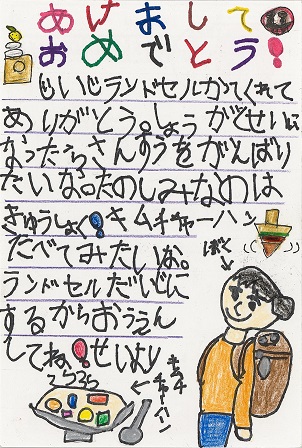 あけまして
おめでとう!
じいじランドセルかてくれて
ありがとう。しょうがくせいに
なったらさんすうをがんばり
たいな。たのしみなのは
きゅうしょく!キムチチャーハン
たべてみたいな。
ぼく
ランドセルだいじに
するからおうえん
してね!せいより
キムチ
チャーハン